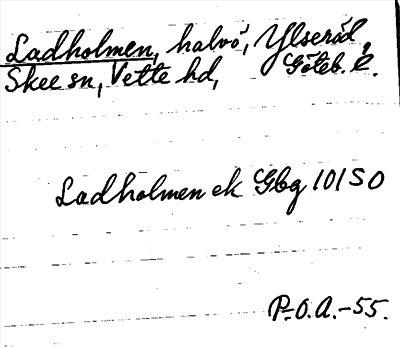 Ladholmen, halvö, Ylseröd,
Skee sn, Vette hd, Göteb. l.
Ladholmen ek Gbg 101 SO
P.O.A.-55.